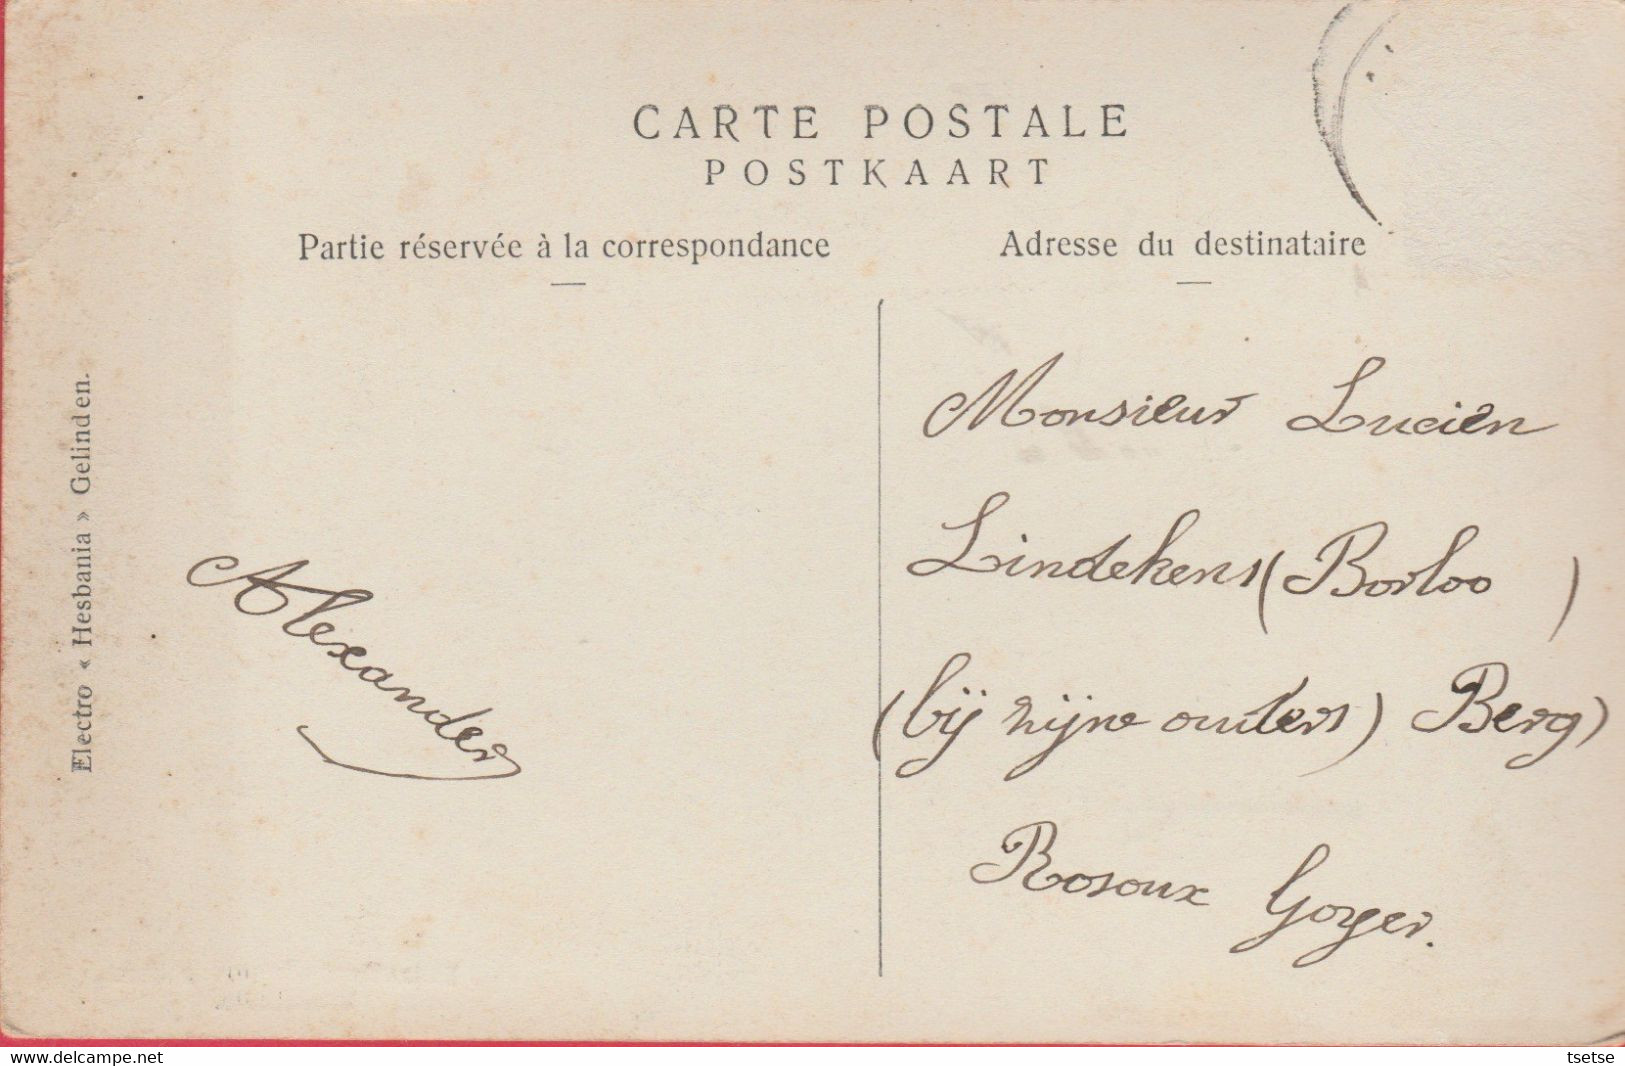 CARTE POSTALE
POSTKAART
Partie réservée à la correspondance
Adresse du destinataire
Electro « Hesbania » Gelinden.
Alexander
Monsieur Lucien
Lindekens (Borloo )
(bij zijne ouders) Berg)
Rosoux Goyer.
delcampe.net
tsetse